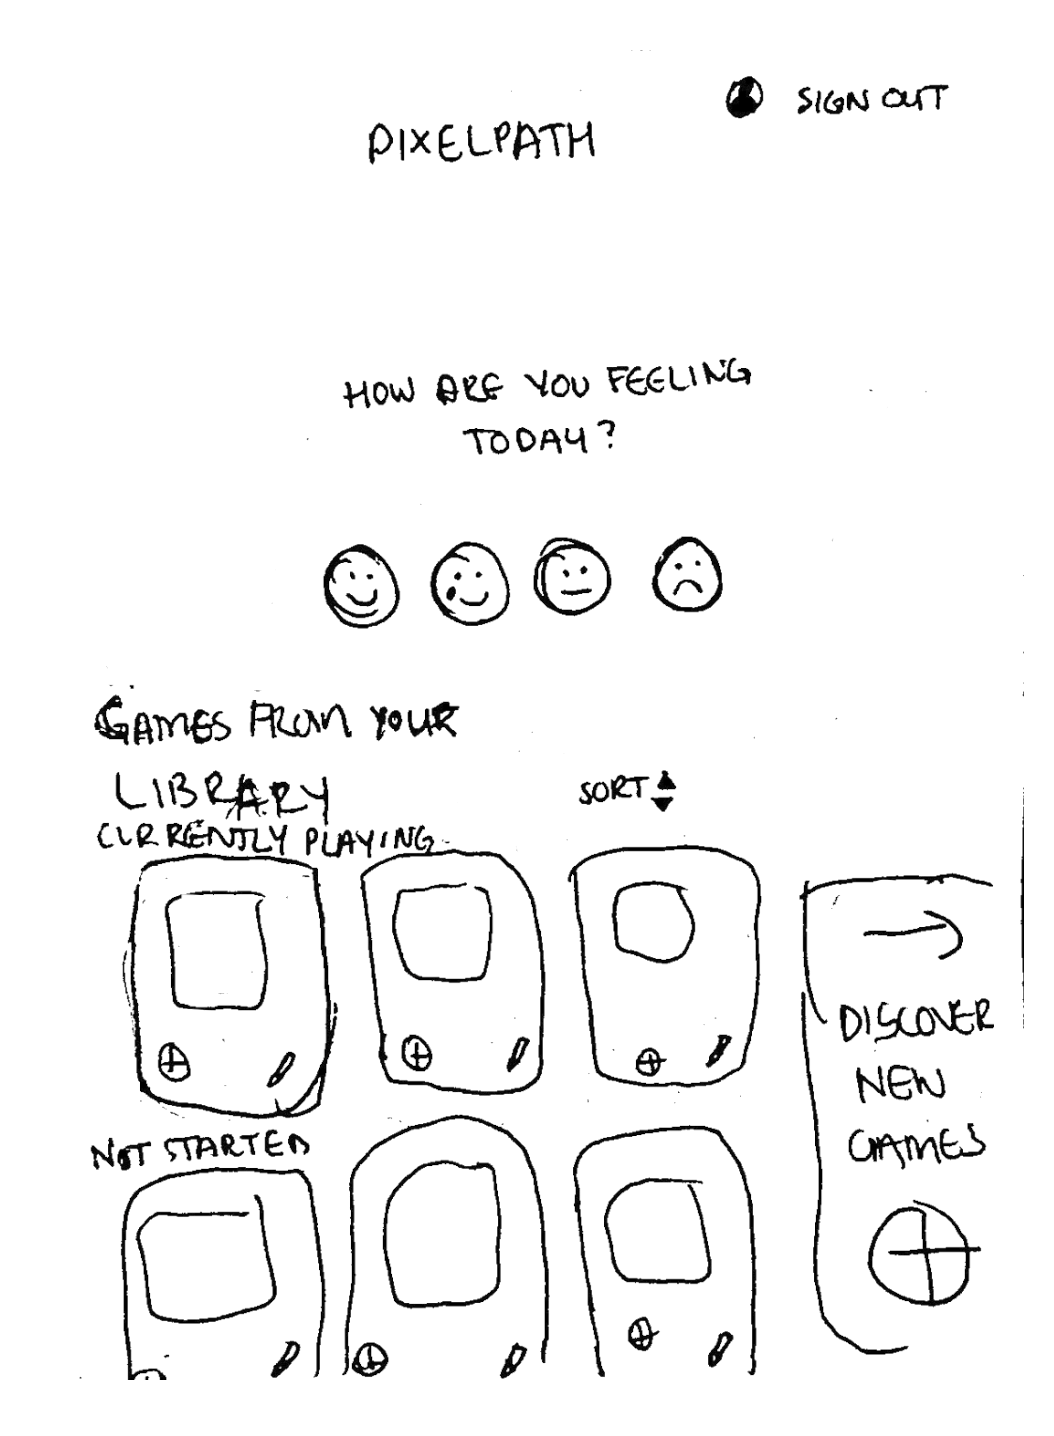 SIGN OUT
PIXELPATH
HOW ARE YOU FEELING
TODAY?
GAMES FROM YOUR
LIBRARY
SORT
CURRENTLY PLAYING
DISCOVER
NEW
GAMES
NOT STARTED